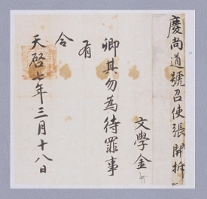 慶尚道號召使張開拆
文學金
卿其勿為待罪事
有
令
天啓七年三月十八日